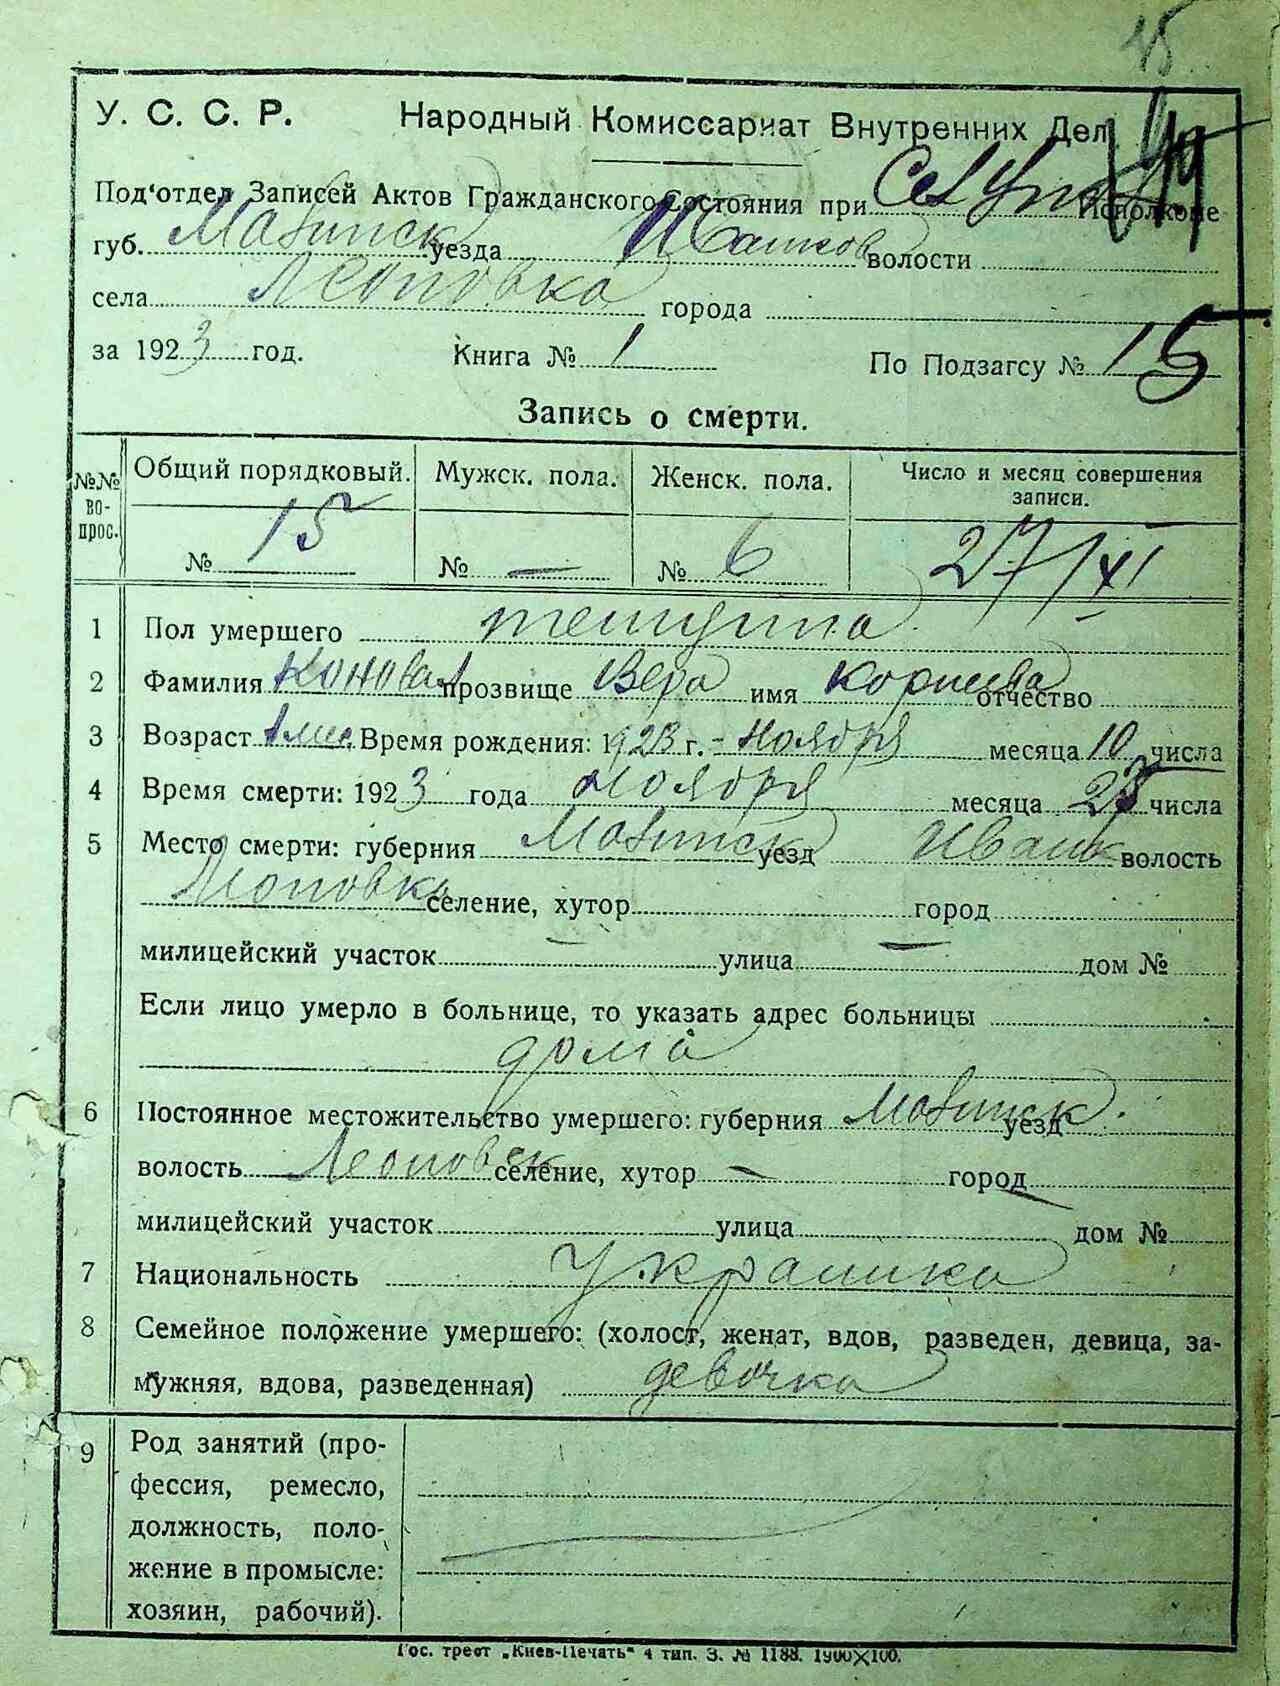 15
У. С. С. Р. Народный Комиссариат Внутренних Дел
Под'отдел Записей Актов Гражданского Состояния при Исполкоме
губ. уезда волости
села города
за 1923 год. Книга № 1 По Подзагсу № 15
Запись о смерти.
№№ во-прос. Общий порядковый. Мужск. пола. Женск. пола. Число и месяц совершения записи.
№ 15 № — № 6 27/XI
1 Пол умершего женщина
2 Фамилия Коновал прозвище Вера имя Корнева отчество
3 Возраст Время рождения: 1923 г. - Ноября месяца 10 числа
4 Время смерти: 1923 года ноября месяца 23 числа
5 Место смерти: губерния уезд Иваньк волость
селение, хутор город
милицейский участок — улица — дом №
Если лицо умерло в больнице, то указать адрес больницы
дома
6 Постоянное местожительство умершего: губерния уезд
волость селение, хутор — город —
милицейский участок улица дом №
7 Национальность украинка
8 Семейное положение умершего: (холост, женат, вдов, разведен, девица, за-
мужняя, вдова, разведенная) девочка
9 Род занятий (про-
фессия, ремесло,
должность, поло-
жение в промысле:
хозяин, рабочий).
Гос. трест „Киев-Печать" 4 тип. З. № 1188. 1900X100.